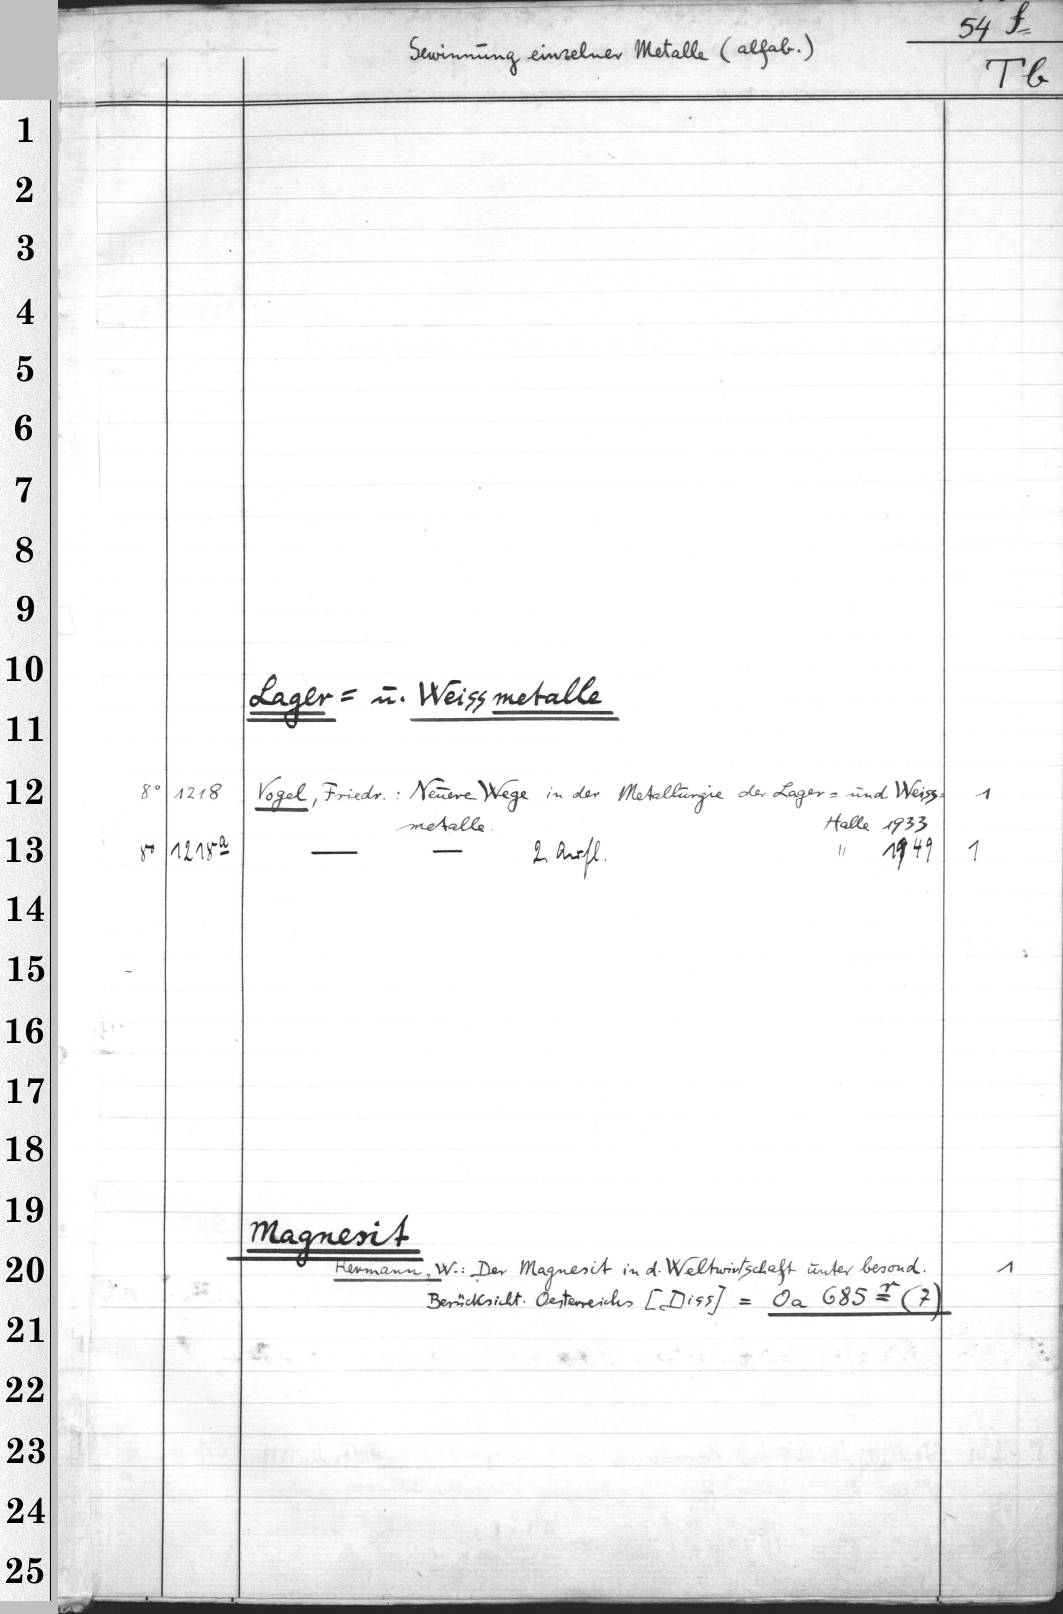 54 f
Gewinnung einzelner Metalle (alfab.)
Tb
1
2
3
4
5
6
7
8
9
10
Lager= u. Weissmetalle
11
12 8° 1218 Vogel, Friedr.: Neuere Wege in der Metallurgie der Lager= und Weiss= 1
metalle. Halle 1933
13 8° 1218a — — 2. Aufl. " 1949 1
14
15
16
17
18
19
Magnesit
20 Hermann, W.: Der Magnesit in d. Weltwirtschaft unter besond. 1
Berücksicht. Oesterreichs [Diss] = Oa 685 r (7)
21
22
23
24
25